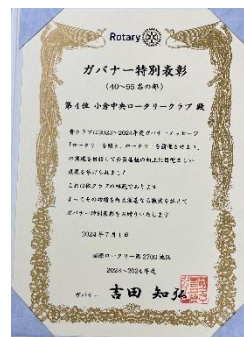 Rotary
ガバナー特別表彰
(40〜55名の部)
第4位 小倉中央ロータリークラブ 殿
貴クラブは2023〜2024年度ガバナーメッセージ
の実現を目指して会員基盤の向上に目覚ましい
成果を挙げられました
これは他クラブの模範であります
よってその功績を
ガバナー特別表彰をお贈りいたします
2024年7月1日
国際ロータリー第2700地区
2023〜2024年度
ガバナー 吉田 知弘